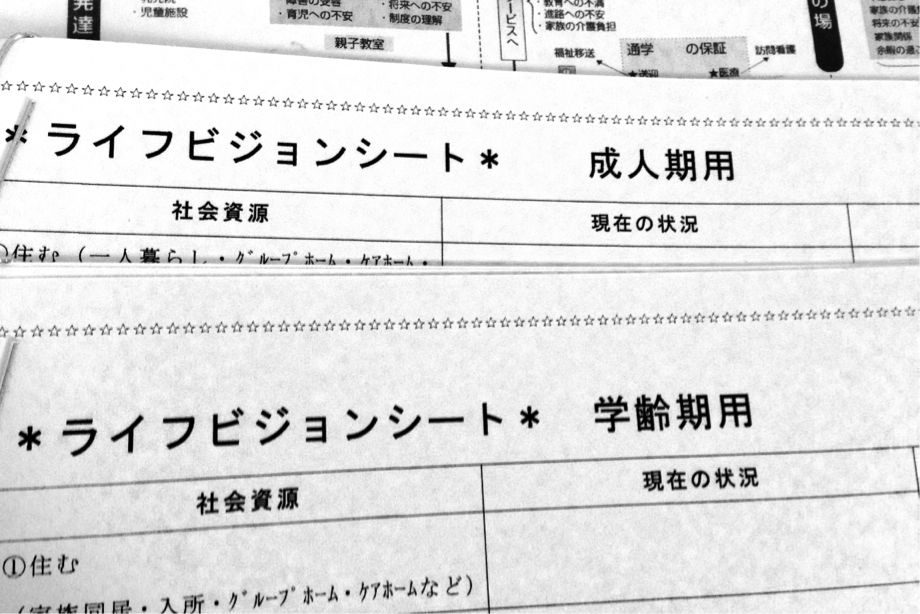 発達
・児童施設
・育児への不安
・将来への不安
・制度の理解
親子教室
サービスへ
・教育への不満
・進路への不安
・家族の介護負担
福祉移送
通学 の保証
訪問看護
★送迎
★医療
の場
家族の介護
将来の不安
家族関係
☆☆☆☆☆☆☆☆☆☆☆☆☆☆☆☆☆☆☆☆☆☆☆☆☆☆☆☆☆☆☆☆☆☆☆☆☆☆☆☆
＊ライフビジョンシート＊ 成人期用
社会資源 現在の状況
①住む（一人暮らし・ｸﾞﾙｰﾌﾟﾎｰﾑ・ケアホーム・
☆☆☆☆☆☆☆☆☆☆☆☆☆☆☆☆☆☆☆☆☆☆☆☆☆☆☆☆☆☆☆☆☆☆☆☆☆☆☆☆
＊ライフビジョンシート＊ 学齢期用
社会資源 現在の状況
①住む
（家族同居・入所・ｸﾞﾙｰﾌﾟﾎｰﾑ・ケアホームなど）